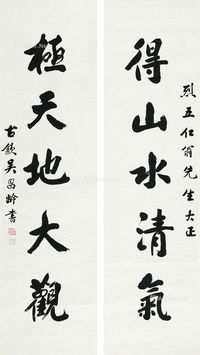 烈五仁翁先生大正
得山水清氣
極天地大觀
古歙吴昌齡書